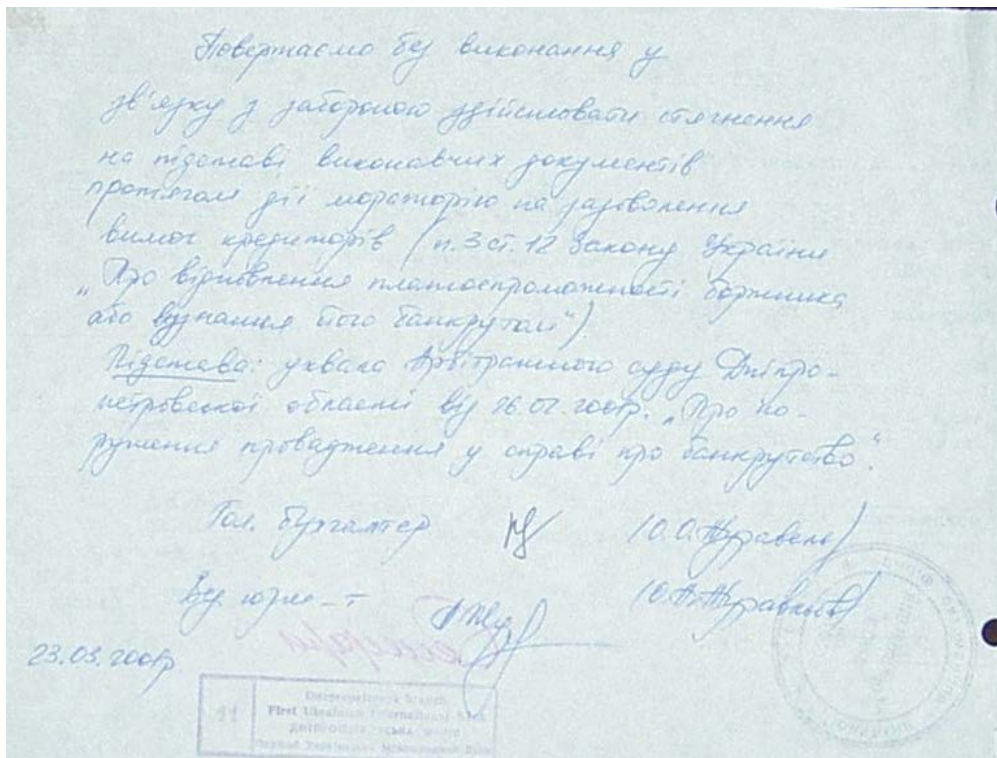 Повертаємо без виконання у
зв'язку з забороною здійснювати стягнення
на підставі виконавчих документів
протягом дії мораторію на задоволення
вимог кредиторів (п.3 ст.12 Закону України
„Про відновлення платоспроможності боржника
або визнання його банкрутом")
Підстава: ухвала Арбітражного суду Дніпро-
петровської області від 26.02.2001р. „Про по-
рушення провадження у справі про банкрутство".
Гол. бухгалтер (О.О. Журавель)
Вед. юрис-т
23.03.2001р.
11
Dnipropetrovsk branch
First Ukrainian International Bank
ДНІПРОПЕТРОВСЬКА ФІЛІЯ
Перший Український Міжнародний Банк